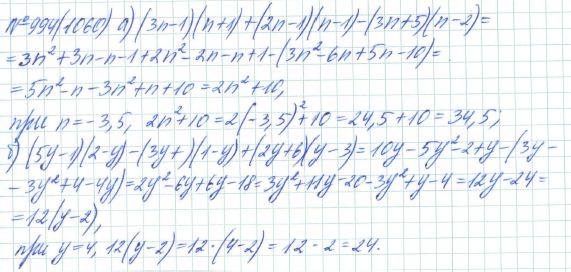 №994(1060) а) (3n-1)(n+1)+(2n-1)(n-1)-(3n+5)(n-2)=
=3n²+3n-n-1+2n²-2n-n+1-(3n²-6n+5n-10)=
=5n²-n-3n²+n+10=2n²+10,
при n=-3,5, 2n²+10=2(-3,5)²+10=24,5+10=34,5;
б) (5y-1)(2-y)-(3y+)(1-y)+(2y+6)(y-3)=10y-5y²-2+y-(3y-
-3y²+4-4y)=2y²-6y+6y-18=3y²+11y-20-3y²+y-4=12y-24=
=12(y-2),
при y=4, 12(y-2)=12·(4-2)=12·2=24.